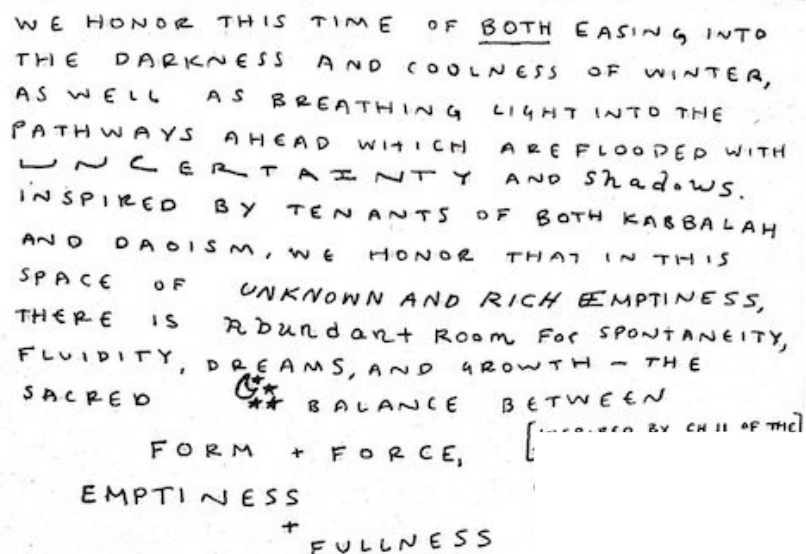 WE HONOR THIS TIME OF BOTH EASING INTO
THE DARKNESS AND COOLNESS OF WINTER,
AS WELL AS BREATHING LIGHT INTO THE
PATHWAYS AHEAD WHICH ARE FLOODED WITH
UNCERTAINTY AND Shadows.
INSPIRED BY TENANTS OF BOTH KABBALAH
AND DAOISM, WE HONOR THAT IN THIS
SPACE OF UNKNOWN AND RICH EMPTINESS,
THERE IS Abundant Room For SPONTANEITY,
FLUIDITY, DREAMS, AND GROWTH – THE
SACRED BALANCE BETWEEN
[INSPIRED BY CH 11 OF THE]
FORM + FORCE,
EMPTINESS
+
FULLNESS